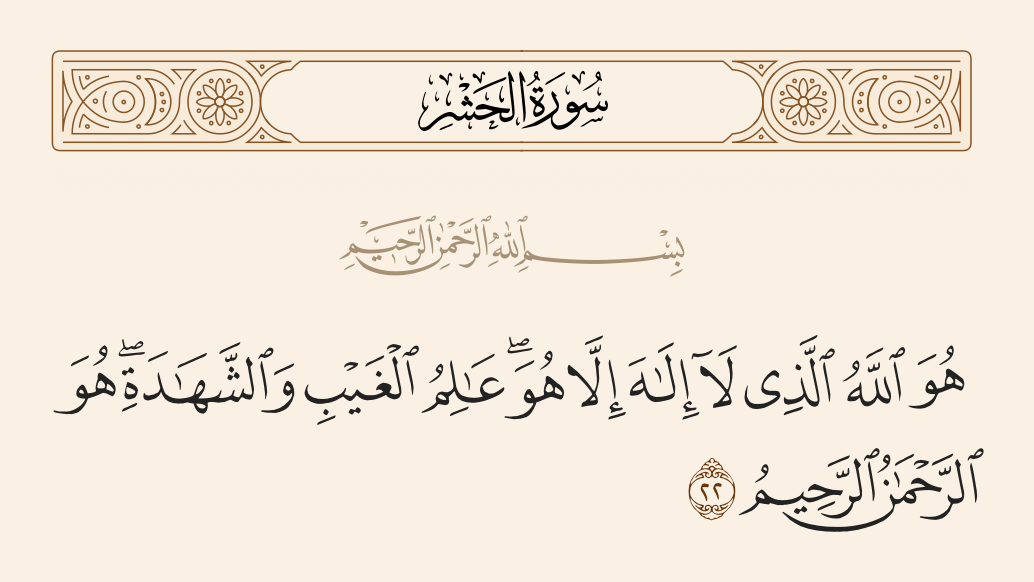 سُورَةُ الحَشْرِ
بِسْمِ ٱللَّهِ ٱلرَّحْمَٰنِ ٱلرَّحِيمِ
هُوَ ٱللَّهُ ٱلَّذِى لَآ إِلَٰهَ إِلَّا هُوَ ۖ عَٰلِمُ ٱلْغَيْبِ وَٱلشَّهَٰدَةِ ۖ هُوَ
ٱلرَّحْمَٰنُ ٱلرَّحِيمُ ٢٢